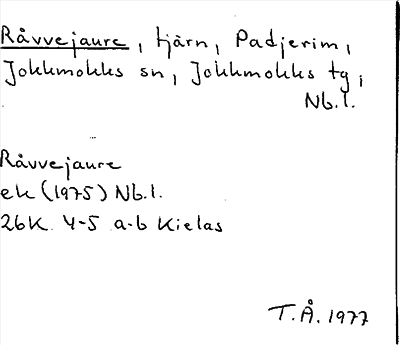 Råvvejaure, tjärn, Padjerim,
Jokkmokks sn, Jokkmokks tg,
Nb.l.
Råvvejaure
ek (1975) Nb.l.
26K 4-5 a-b Kielas
T.Å. 1977